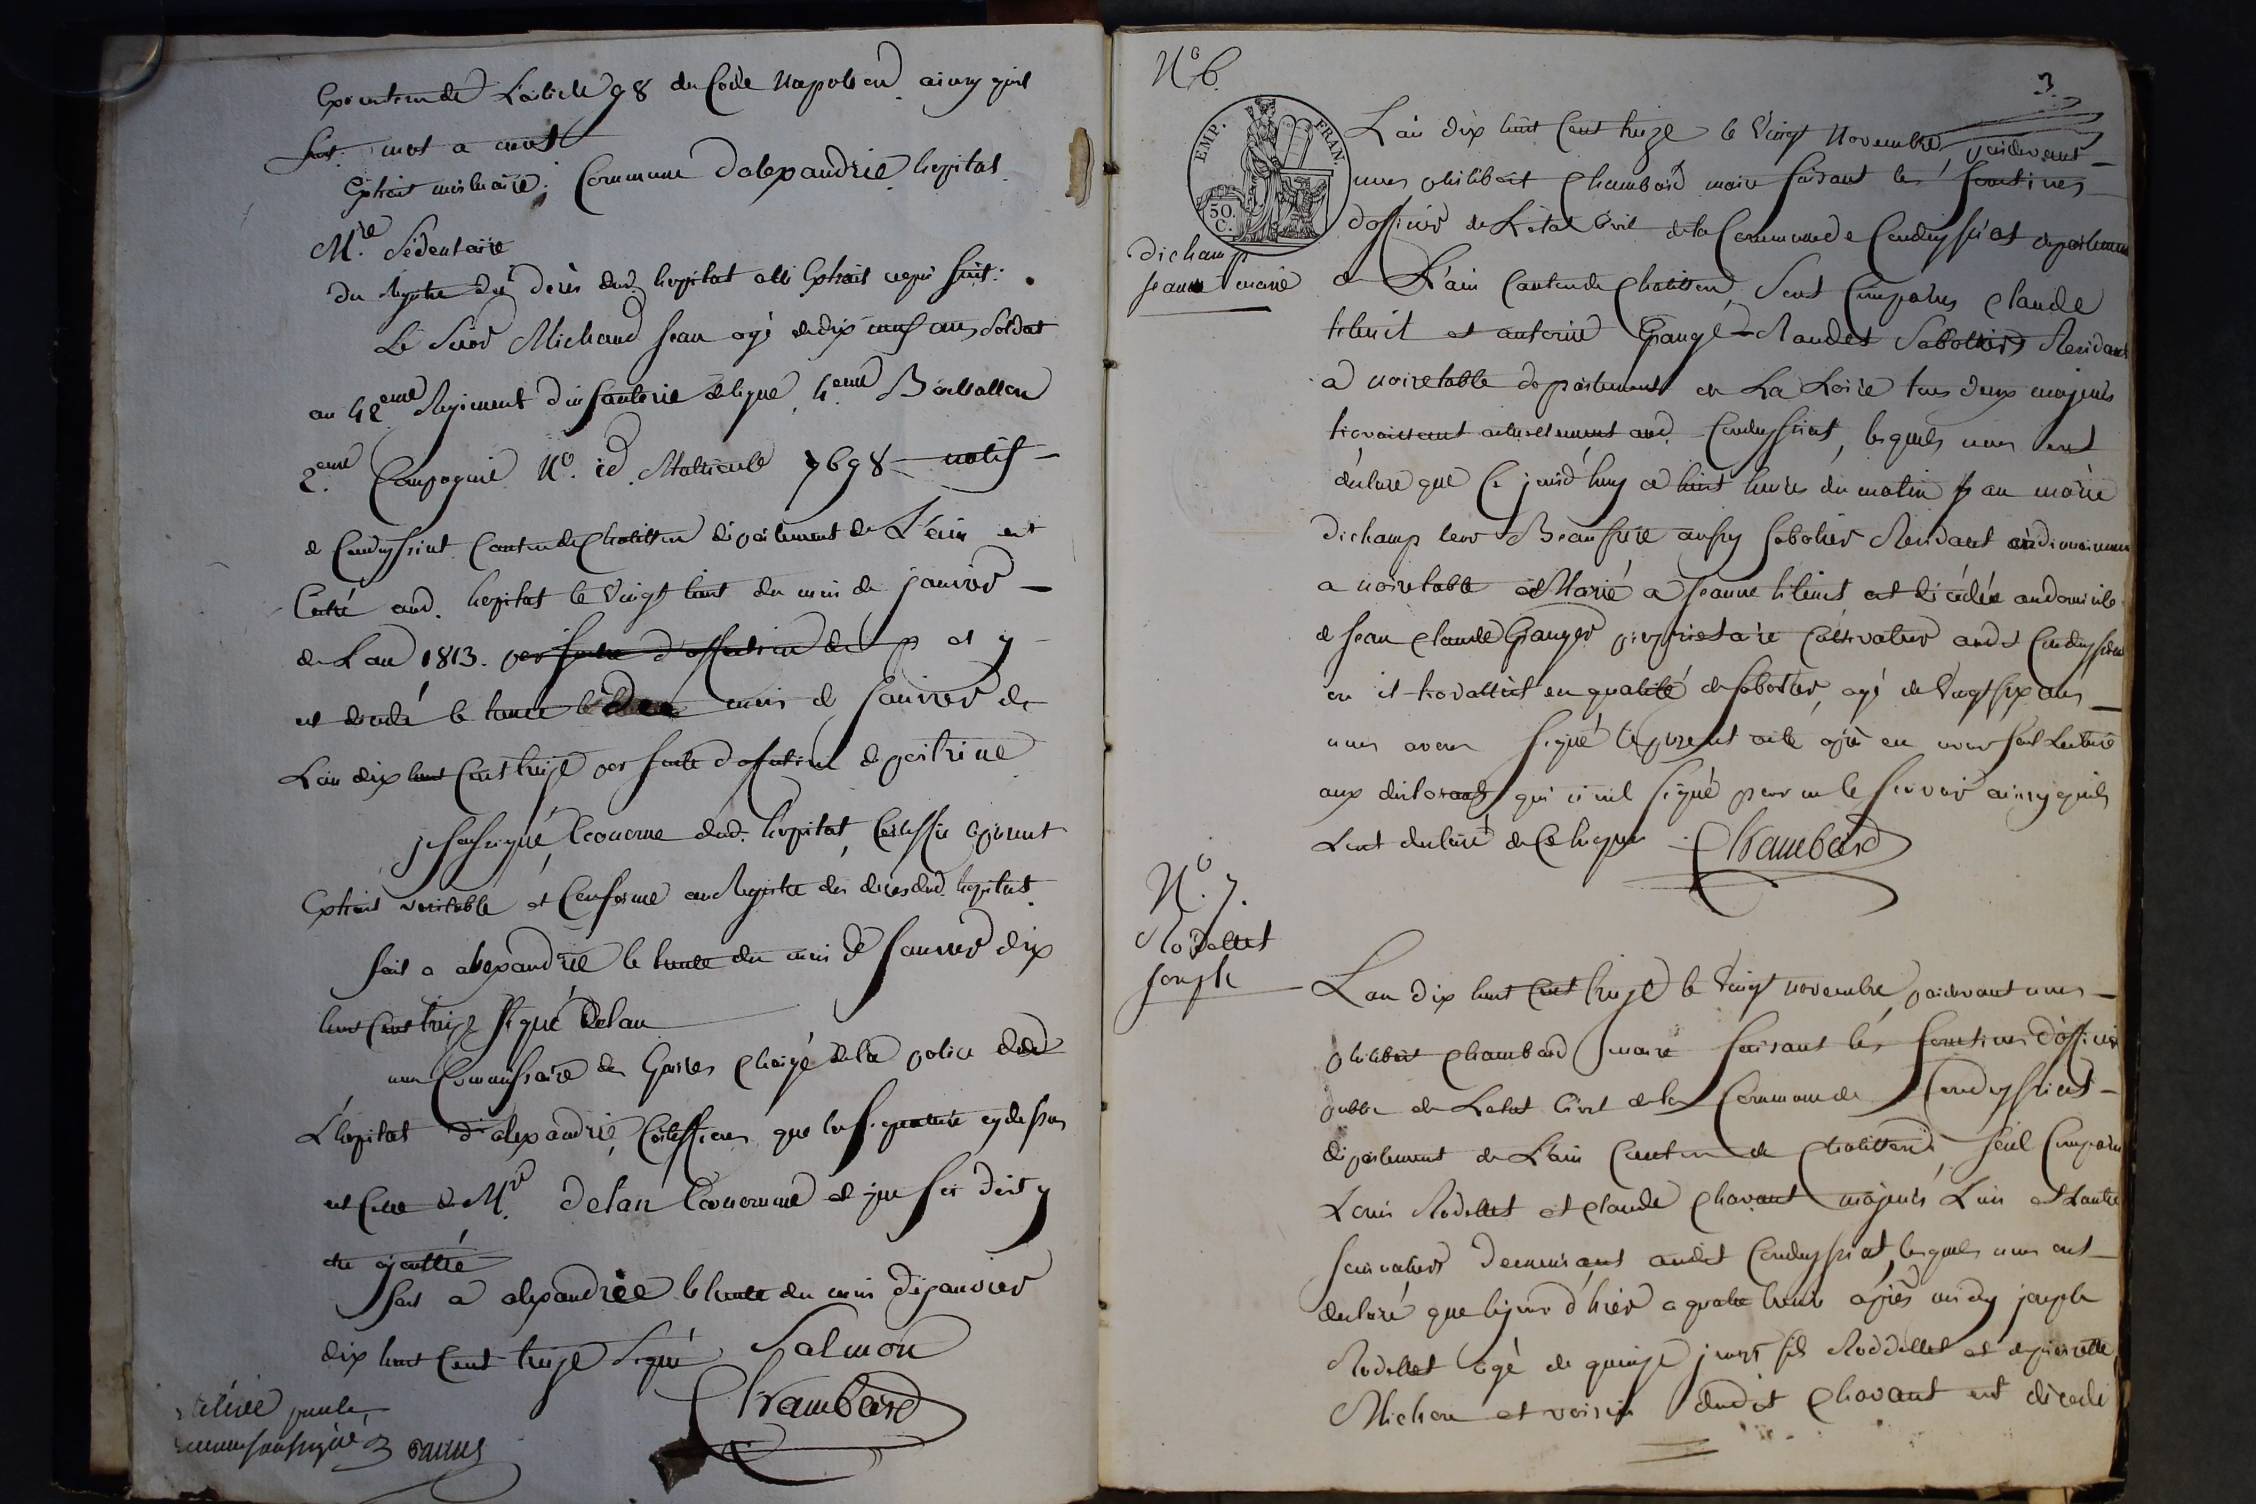 Execution de L'article 98 du Code Napoleon ainsy quil
suit mot a mot
Extrait mortuaire; Commune dalexandrie hopital
M.re Sédentaire
Du Registre des décès dud. hopital a été Extrait ce qui suit:
Le Sieur Michaud Jean agé de dix neuf ans Soldat
au 42eme Regiment dinfanterie de ligne, 4.eme Bataillon
2.eme Compagnie N.o id. Matricule 7698 natif
de Condeyssiat Canton de Chatillon département de L'ain est
Entré aud. hopital le Vingt huit du mois de janvier
de Lan 1813. par suite d'affection de p et y
est décédé le trente mois de Janvier de
Lan dix huit Cent treize par suite d'afection de poitrine
je soussigné, Econome dud. hopital, Certiffie le présent
Extrait veritable et Conforme au Registre des décès dud. hopital.
fait a alexandrie le trente du mois de Janvier dix
huit Cent treize signé Delan
nous Commissaire des Guerres Chargé de la police dud
L'hopital d'alexandrie, Certiffions que la signature cy dessus
est Celle de M.r Delan Econome et que foi doit y
etre ajoutée
fait a alexandrie le trente du mois de janvier
dix huit Cent treize Signé Salmon
Chambard
soussigné
N.o 6.
3.
EMP. FRAN.
50. C.
dichamp
jeanne marie
L'an dix huit Cent treize le Vingt Novembre, pardevant
nous philibert Chambard maire faisant les fonctions
d'officier de L'état Civil de la Commune de Condeyssiat departement
de L'ain Canton de Chatillon, Sont Comparus Claude
et antoine Grangé Sabotiers Residants
a noiretable departement de La Loire tous deux majeurs
travaillant actuellement aud. Condeyssiat, lesquels nous ont
déclaré que Ce jourd'huy a huit heures du matin jean marie
dichamp leur Beaufrère aussy sabotier Residant
a noiretable et Marié a Jeanne est décédé au domicile
de Jean Claude Granger propriétaire Cultivateur audit Condeyssiat
ou il travalloit en qualité de sabotier, agé de Vingt six ans
nous avons signé le present acte après en avoir fait Lecture
aux déclarants qui n'ont signé pour ne le savoir ainsy quils
L'ont declaré de Ce Requis Chambard
N.o 7.
Rodellet
joseph
L'an dix huit Cent treize le Vingt novembre, pardevant nous
philibert Chambard maire faisant les fonctions d'officier
public de L'etat Civil de la Commune de Condeyssiat
département de L'ain Canton de Chatillon, Sont Comparus
Louis Rodellet et Claude Chavant majeurs L'un et L'autre
Demeurant audit Condeyssiat, lesquels nous ont
declaré que le jour d'hier a quatre heures après midy joseph
Rodellet agé de quinze jours fils Roddellet et de pierrette
Michon et voisin dudit Chavant est décédé